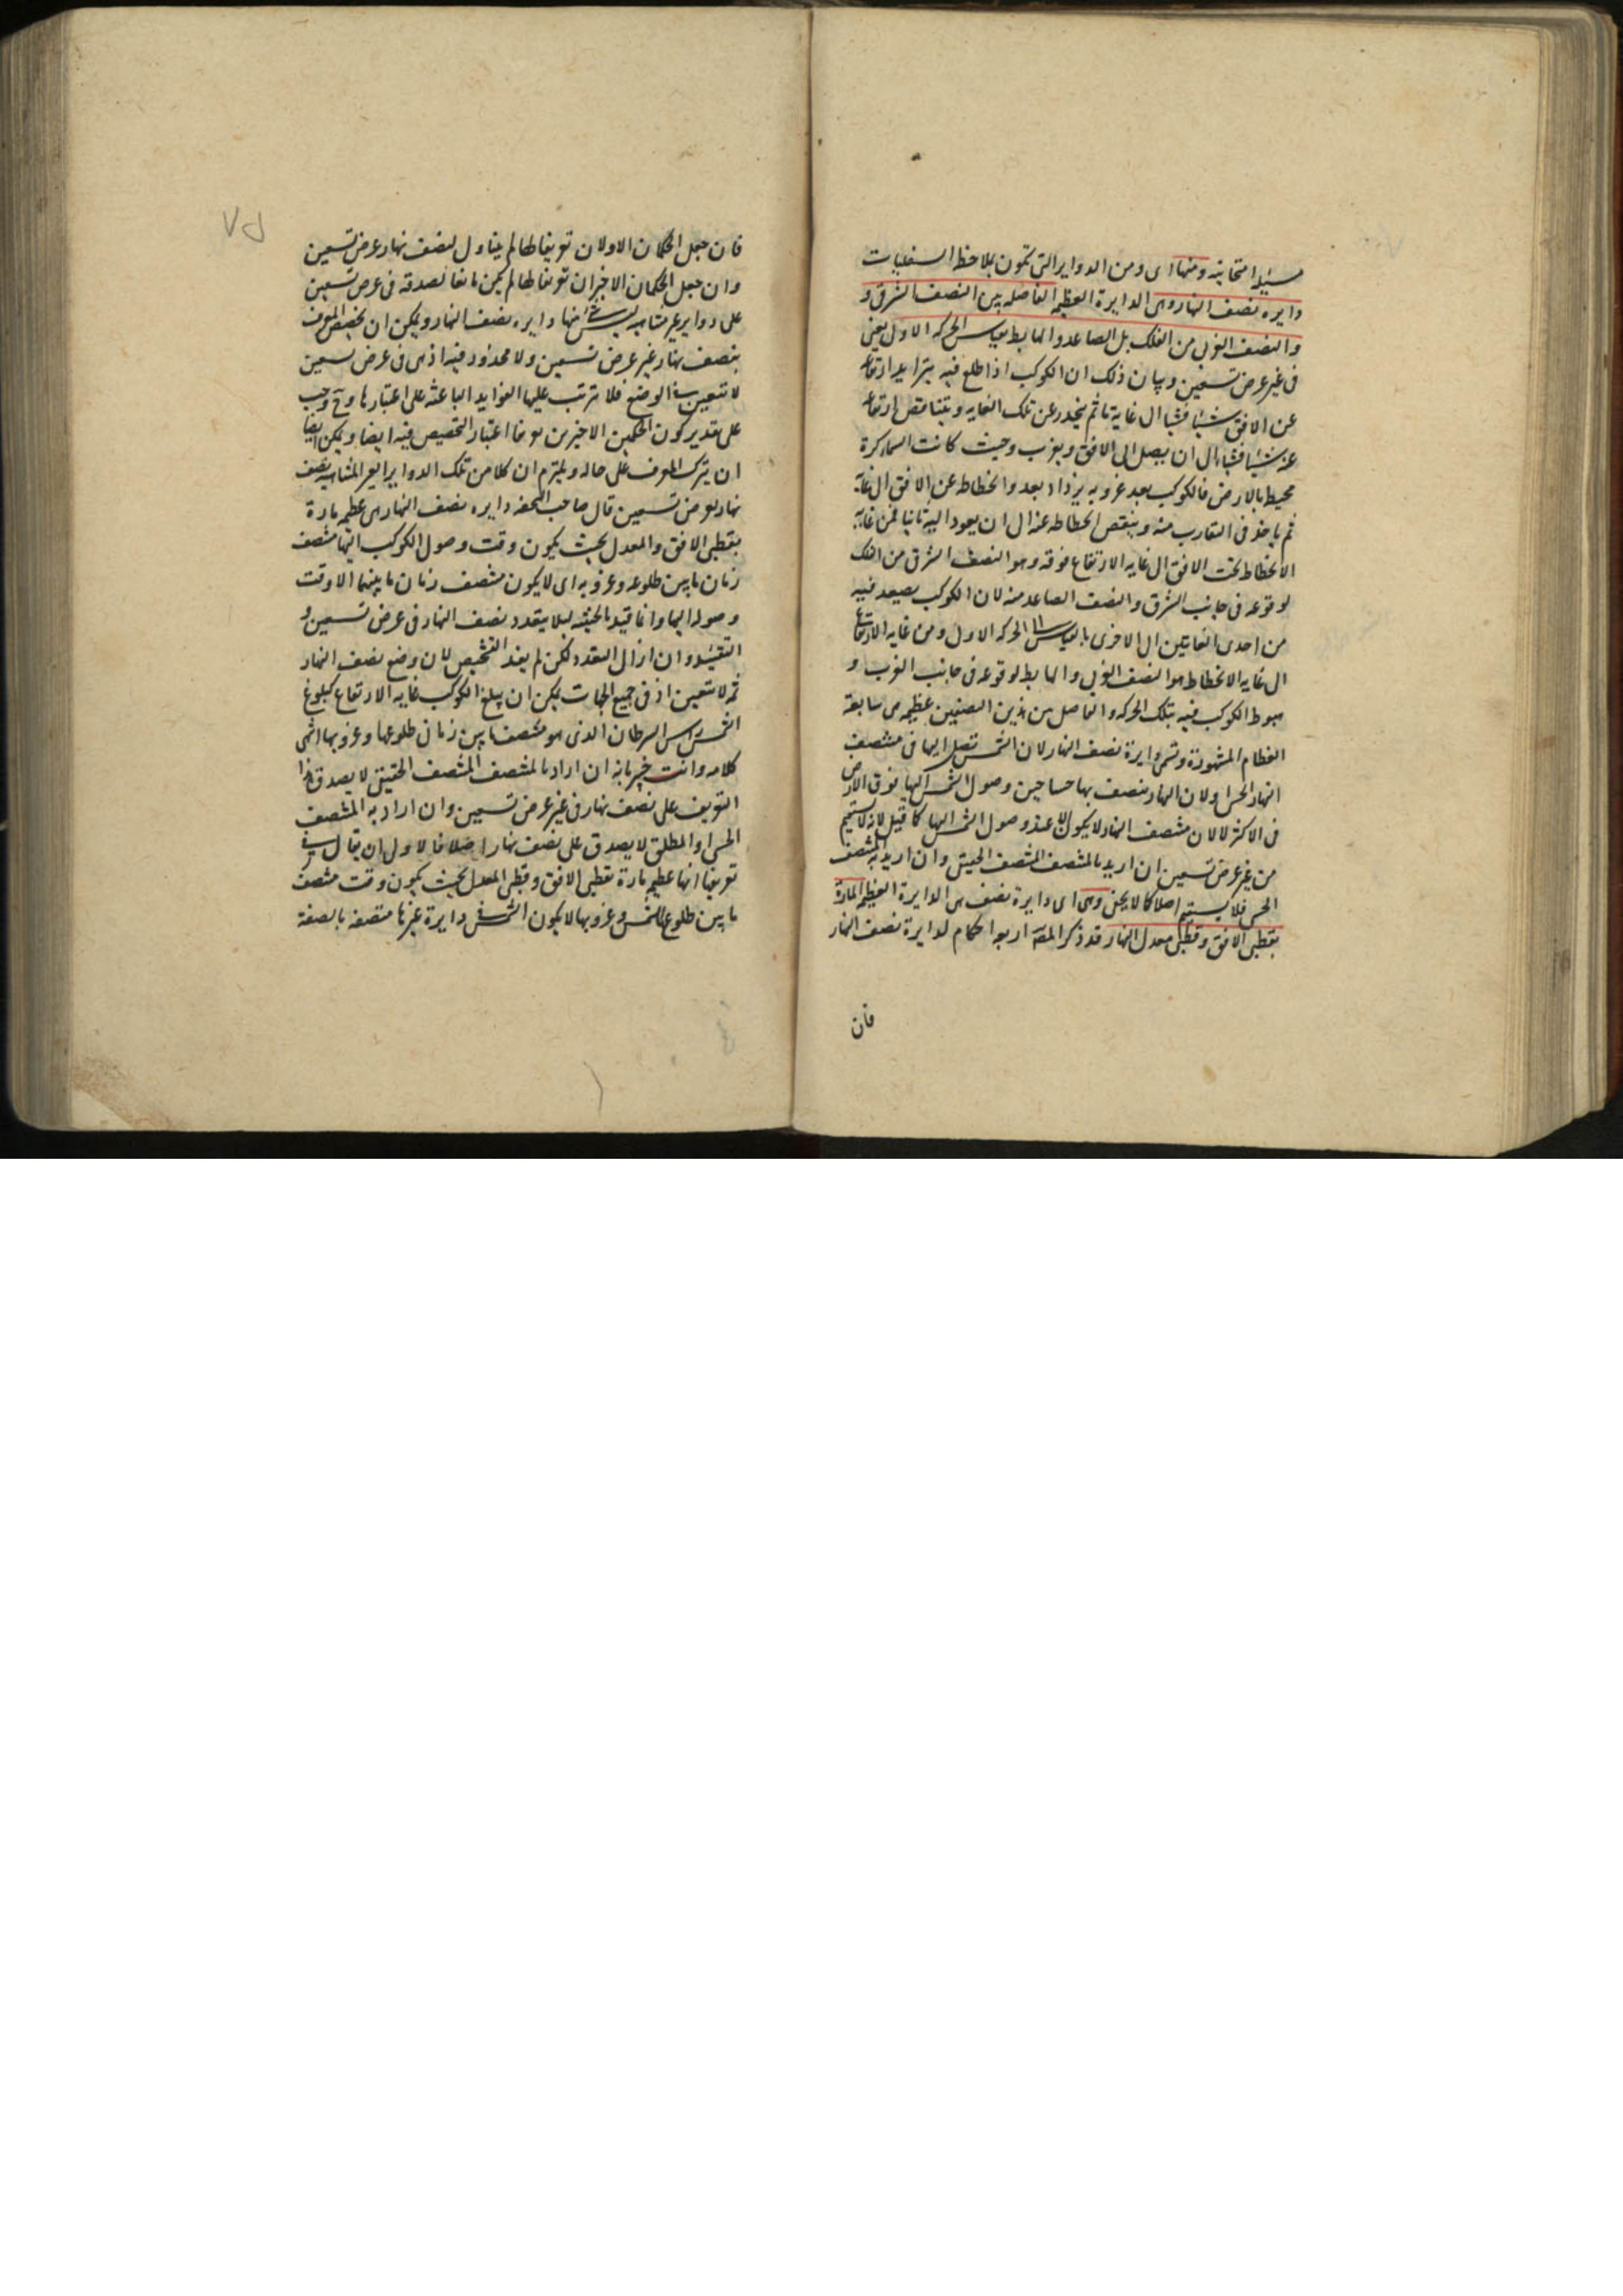 مسئلة امتحانية ومنها اى ومن الدواير التى تكون بملاحظة السفليات
دايره نصف النهار وهى الدايرة العظيمة الفاصلة بين النصف الشرقى و
والنصف الغربى من الفلك بل الصاعد والهابط بقياس الحركة الاولى يعنى
فى غير عرض تسعين وبيان ذلك ان الكوكب اذا طلع فيه يتزايد ارتفاعه
عن الافق شيئا فشيئا الى غاية ما ثم ينحدر عن تلك الغايه ويتناقص ارتفاعه
عنه شيئا فشيئا الى ان يصل الى الافق ويغرب وحيث كانت السماء كرة
محيطة بالارض فالكوكب بعد غروبه يزداد بعد وانحطاطه عن الافق الى غاية
ثم ياخذ فى التقارب منه وينتقص انحطاطه عنه الى ان يعود اليه ثانيا فمن غاية
الانحطاط تحت الافق الى غايه الارتفاع فوقه وهو النصف الشرقى من الفلك
لوقوعه فى جانب الشرق والنصف الصاعد منه لان الكوكب يصعد فيه
من احدى الغايتين الى الاخرى بالقياس الى الحركه الاولى ومن غايه الارتفاع
الى غايه الانحطاط هو النصف الغربى والهابط لوقوعه فى جانب الغرب و
هبوط الكوكب فيه بتلك الحركه والفاصل بين هذين النصفين عظيمه هى سابعة
العظام المشهورة وتسمى دايرة نصف النهار لان الشمس تصل اليها فى منتصف
النهار الحسى ولان النهار ينتصف بها حسا حين وصول الشمس اليها فوق الارض
فى الاكثر لا لان منتصف النهار لا يكون الا عند وصول الشمس اليها كما قيل لانه لا يستقيم
من غير عرض تسعين ان اريد بالمنتصف المنتصف الحقيقى وان اريد به المنتصف
الحسى فلا يستقيم اصلا كما لا يخفى وهى اى دايرة نصف هى الدايرة العظيمة المارة
بقطبى الافق وقطبى معدل النهار قد ذكر المصه اربعة احكام لدايرة نصف النهار
فان
فان جعل الحكمان الاولان تعريفا لها لم يتناول لنصف نهار عرض تسعين
وان جعل الحكمان الاخيران تعريفا لها لم يكن مانعا لصدقه فى عرض تسعين
على دواير غير متناهيه ليس شئ منها دايره نصف النهار ويمكن ان يخصص المعرف
بنصف نهار غير عرض تسعين ولا محذور فيه اذ هى فى عرض تسعين
لا تتعين الوضع فلا تترتب عليها الفوايد الباعثة على اعتبارها وح وجب
على تقدير كون الحكمين الاخيرين تعريفا اعتبار التخصيص فيه ايضا ويمكن ايضا
ان يترك المعرف على حاله ويلتزم ان كلا من تلك الدواير الغير المتناهيه نصف
نهار لعرض تسعين قال صاحب التحفه دايره نصف النهار هى عظيمه مارة
بقطبى الافق والمعدل بحيث يكون وقت وصول الكوكب اليها منتصف
زمان ما بين طلوعه وغروبه اى لا يكون منتصف زمان ما بينهما الا وقت
وصوله اليها وانما قيد بالحيثيه ليلا يتعدد نصف النهار فى عرض تسعين و
التقييد وان ازال التعدد لكن لم يفد التشخيص لان وضع نصف النهار
ثمه لا يتعين اذ فى جميع الجهات يمكن ان يبلغ الكوكب غايه الارتفاع كبلوغ
الشمس راس السرطان الذى هو منتصف ما بين زمان طلوعها وغروبها انتهى
كلامه وانت خبير بانه ان اراد بالمنتصف المنتصف الحقيقى لا يصدق هذا
التعريف على نصف نهار فى غير عرض تسعين وان اراد به المنتصف
الحسى او المطلق لا يصدق على نصف نهار اصلا فالاولى ان يقال فى
تعريفها انها عظيمه مارة بقطبى الافق وقطبى المعدل بحيث يكون وقت منتصف
ما بين طلوع الشمس وغروبها لا يكون الشمس فى دايرة غيرها متصفه بالصفة